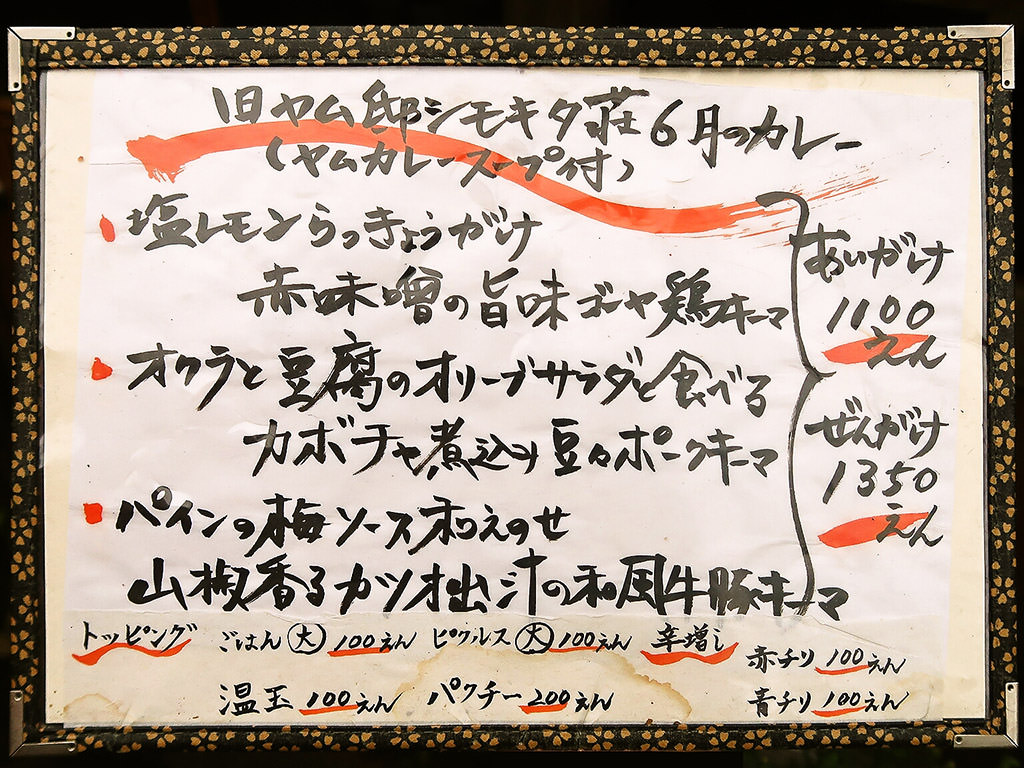 旧ヤム邸シモキタ荘6月のカレー
(ヤムカレースープ付)
塩レモンらっきょうがけ
赤味噌の旨味ゴーヤ鶏キーマ
オクラと豆腐のオリーブサラダと食べる
カボチャ煮込み豆々ポークキーマ
パインの梅ソース和えのせ
山椒香るカツオ出汁の和風牛豚キーマ
あいがけ
1100
えん
ぜんがけ
1350
えん
トッピング ごはん大 100えん ピクルス大 100えん 辛増し 赤チリ 100えん
温玉 100えん パクチー 200えん 青チリ 100えん